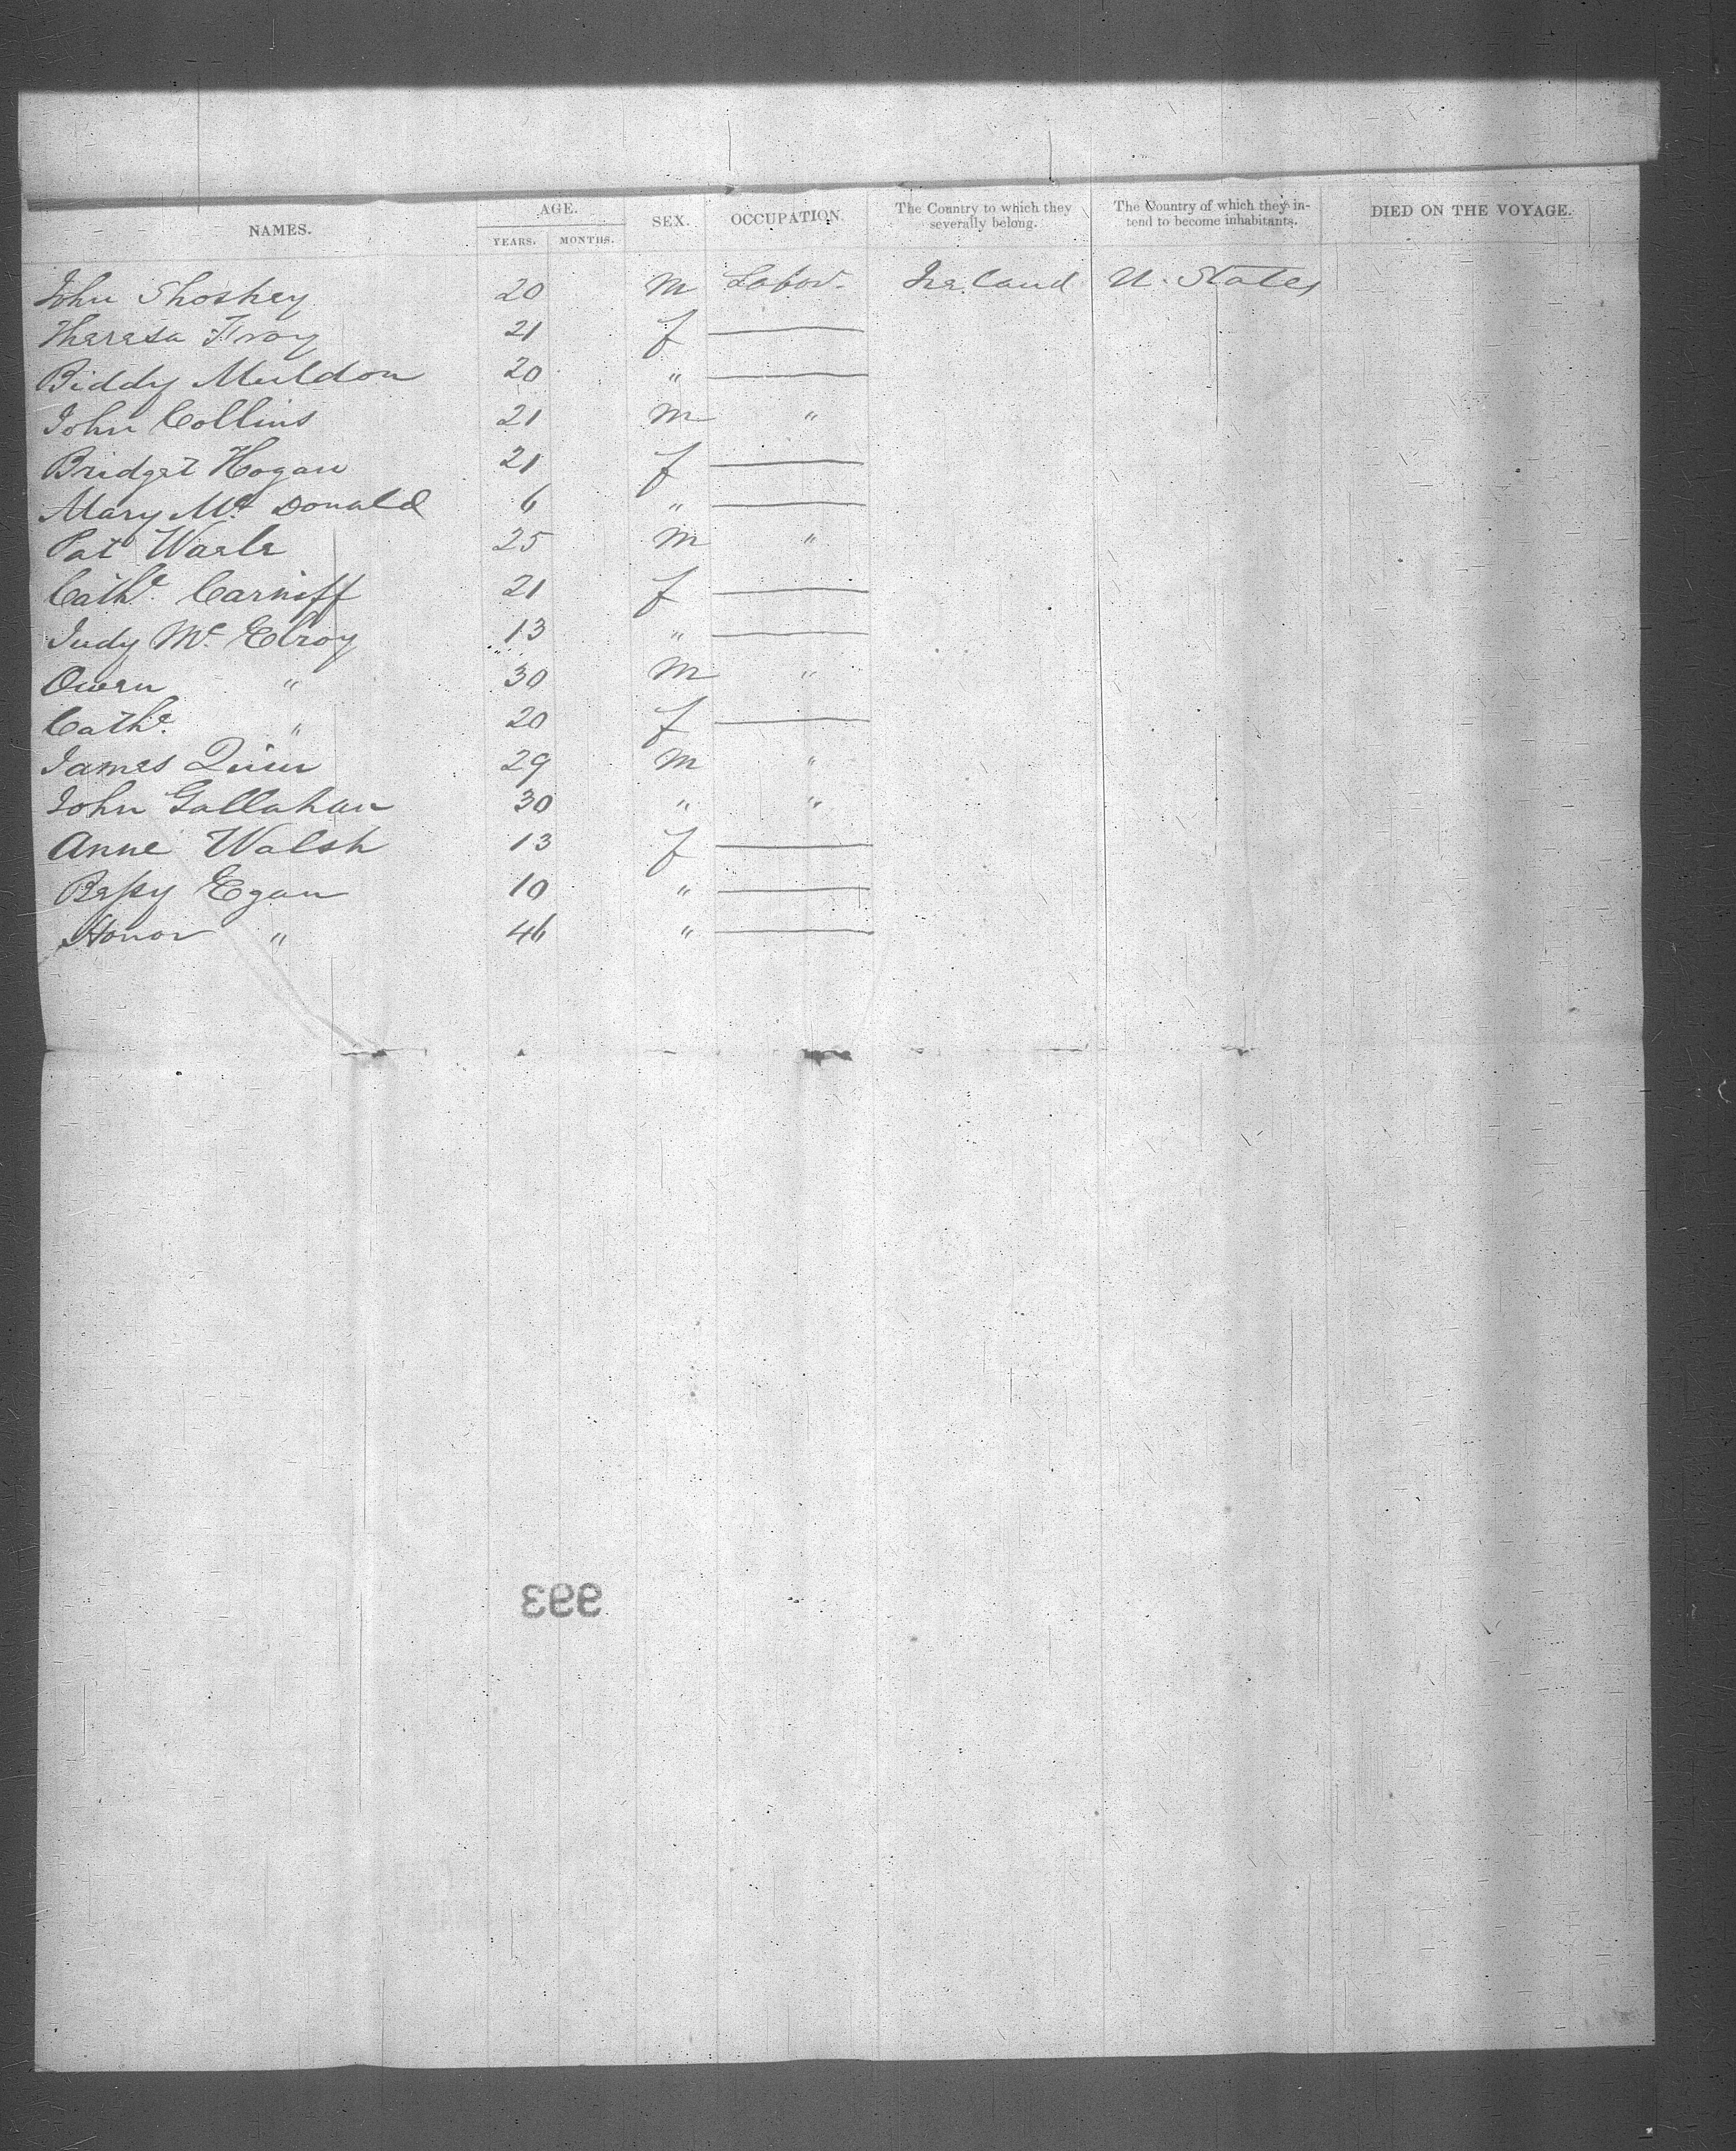 NAMES. AGE. YEARS. MONTHS. SEX. OCCUPATION. The Country to which they severally belong. The Country of which they intend to become inhabitants. DIED ON THE VOYAGE.
John Shoskey 20 m Labor. Ireland U. States
Theresa Troy 21 f
Biddy Muldon 20 "
John Collins 21 m "
Bridget Hogan 21 f
Mary Mc Donald 6 "
Pat 25 m "
Cathe. Carniff 21 f
Judy Mc Elroy 13 "
Owen " 30 m "
Cathe. " 20 f
James Quin 29 m "
John Gallahan 30 " "
Anne Walsh 13 f
Bessy Egan 10 "
Honor " 46 "
993